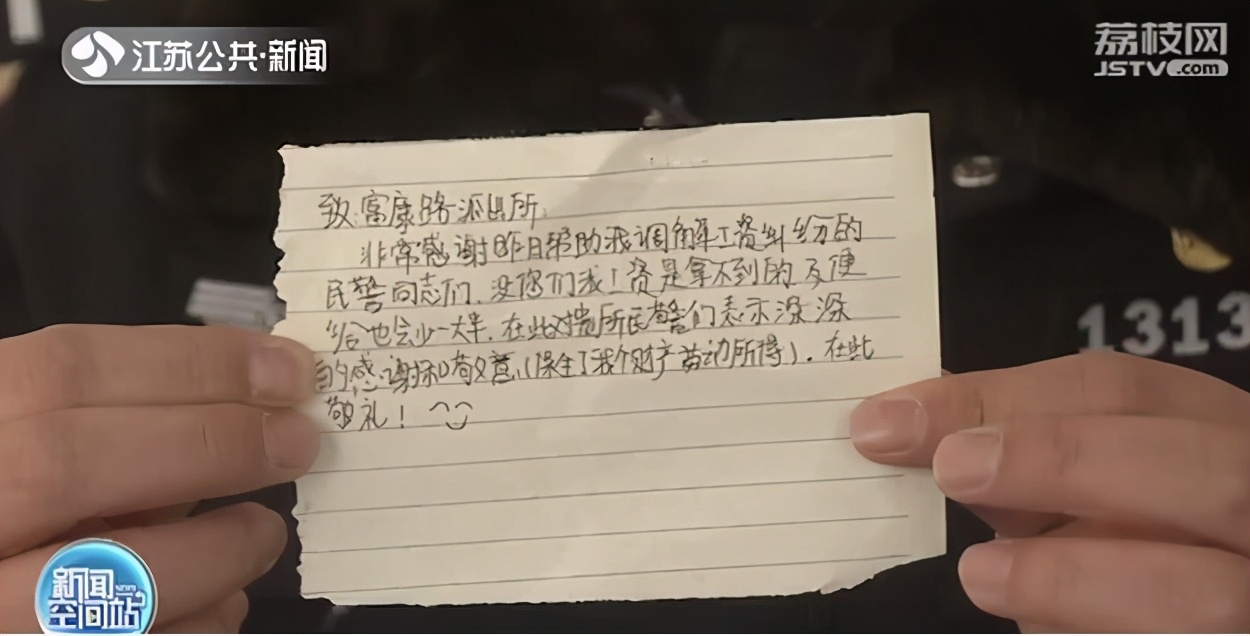 江苏公共·新闻
荔枝网
JSTV.com
致:富康路派出所:
非常感谢昨日帮助我调解工资纠纷的
民警同志们、没你们我工资是拿不到的及便
给也会少一大半.在此对贵所民警们表示深深
的感谢和敬意!(保全了我个财产劳动所得).在此
敬礼!
1313
新闻
空间站